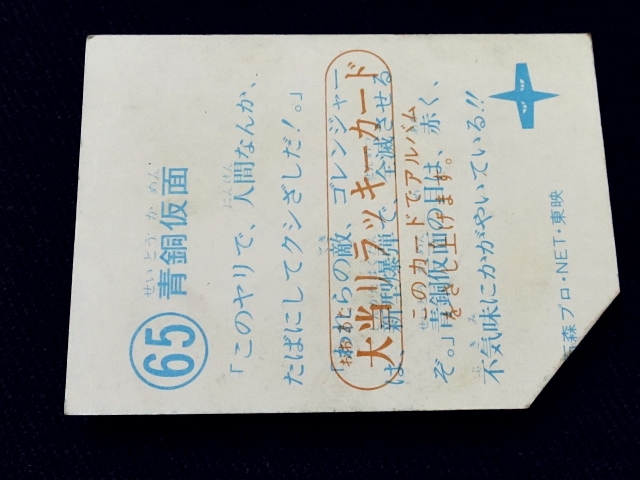 65 青銅仮面
せいどうかめん
「このヤリで、人間なんか、
にんげん
たばにしてクシざしだ！。」
「われらの敵、ゴレンジャー
は、新型爆弾で、全滅させる
ぞ。」青銅仮面の目は、赤く、
不気味にかがやいている!!
大当りラッキーカード
このカードでアルバム
をさし上げます。
石森プロ・NET・東映